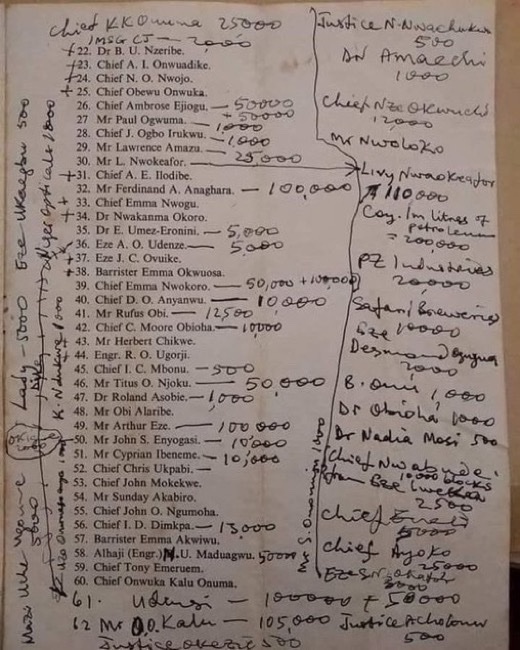 Chief K.K Onuma 25000
IMSG CJ - 2000
22. Dr B. U. Nzeribe.
23. Chief A. I. Onwuadike.
24. Chief N. O. Nwojo.
25. Chief Obewu Onwuka.
26. Chief Ambrose Ejiogu. — 50000
+ 50000
27 Mr Paul Ogwuma. —
28. Chief J. Ogbo Irukwu. — 1,000
29. Mr Lawrence Amazu. — 1,000
30. Mr L. Nwokeafor. — 25,000
31. Chief A. E. Ilodibe.
32 Mr Ferdinand A. Anaghara. — 100,000
33. Chief Emma Nwogu.
34. Dr Nwakanma Okoro.
35. Dr E. Umez-Eronini. — 5,000
36. Eze A. O. Udenze. — 5,000
37. Eze J. C. Ovuike.
38. Barrister Emma Okwuosa.
39. Chief Emma Nwokoro. — 50,000 + 100,000
40. Chief D. O. Anyanwu. — 10,000
41. Mr Rufus Obi. — 12500
42. Chief C. Moore Obioha. — 10,000
43. Mr Herbert Chikwe.
44. Engr. R. O. Ugorji.
45. Chief I. C. Mbonu. — 500
46. Mr Titus O. Njoku. — 50,000
47. Dr Roland Asobie. — 1,000
48. Mr Obi Alaribe.
49. Mr Arthur Eze. — 100,000
50. Mr John S. Enyogasi. — 10,000
51. Mr Cyprian Ibeneme. — 10,000
52. Chief Chris Ukpabi. —
53. Chief John Mokekwe.
54. Mr Sunday Akabiro.
55. Chief John O. Ngumoha.
56. Chief I. D. Dimkpa. — 15,000
57. Barrister Emma Akwiwu.
58. Alhaji (Engr.) N.U. Maduagwu. 5000
59. Chief Tony Emeruem.
60. Chief Onwuka Kalu Onuma.
61. Udensi — 100000 + 50000
62 Mr O.O. Kalu — 105,000
Justice Okezie 500
Justice N. Nwachukwu
500
Dr Amaechi
1000
Chief Nze Okwuchi
12000
Mr Nwoloko
Livy Nwaokeafor
110000
litres of
petroleum
= 200,000
PZ Industries
20000
Safari Breweries
Eze 10000
Desmond
2000
B. Onu 1,000
Dr Obioha 1000
Dr Nadia Mosi 500
Chief Nwabunde
10,000 blocks
Eze
2500
Chief
5000
Chief Ayoko
25000
Eze
5000
Justice Acholonu
500
Mr S. 1000
Eze Ukaegbu 500
Lady - 5000
Opticals 1000
K. Ndukwe 1000
Mazi Uche
5000